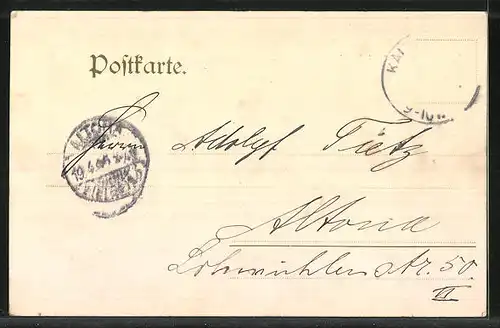 Postkarte.
KAI
9-10V.
ALTONA
19.4.
Herrn Adolf Tietz
Altona
Lohmühlenstr. 50.
II